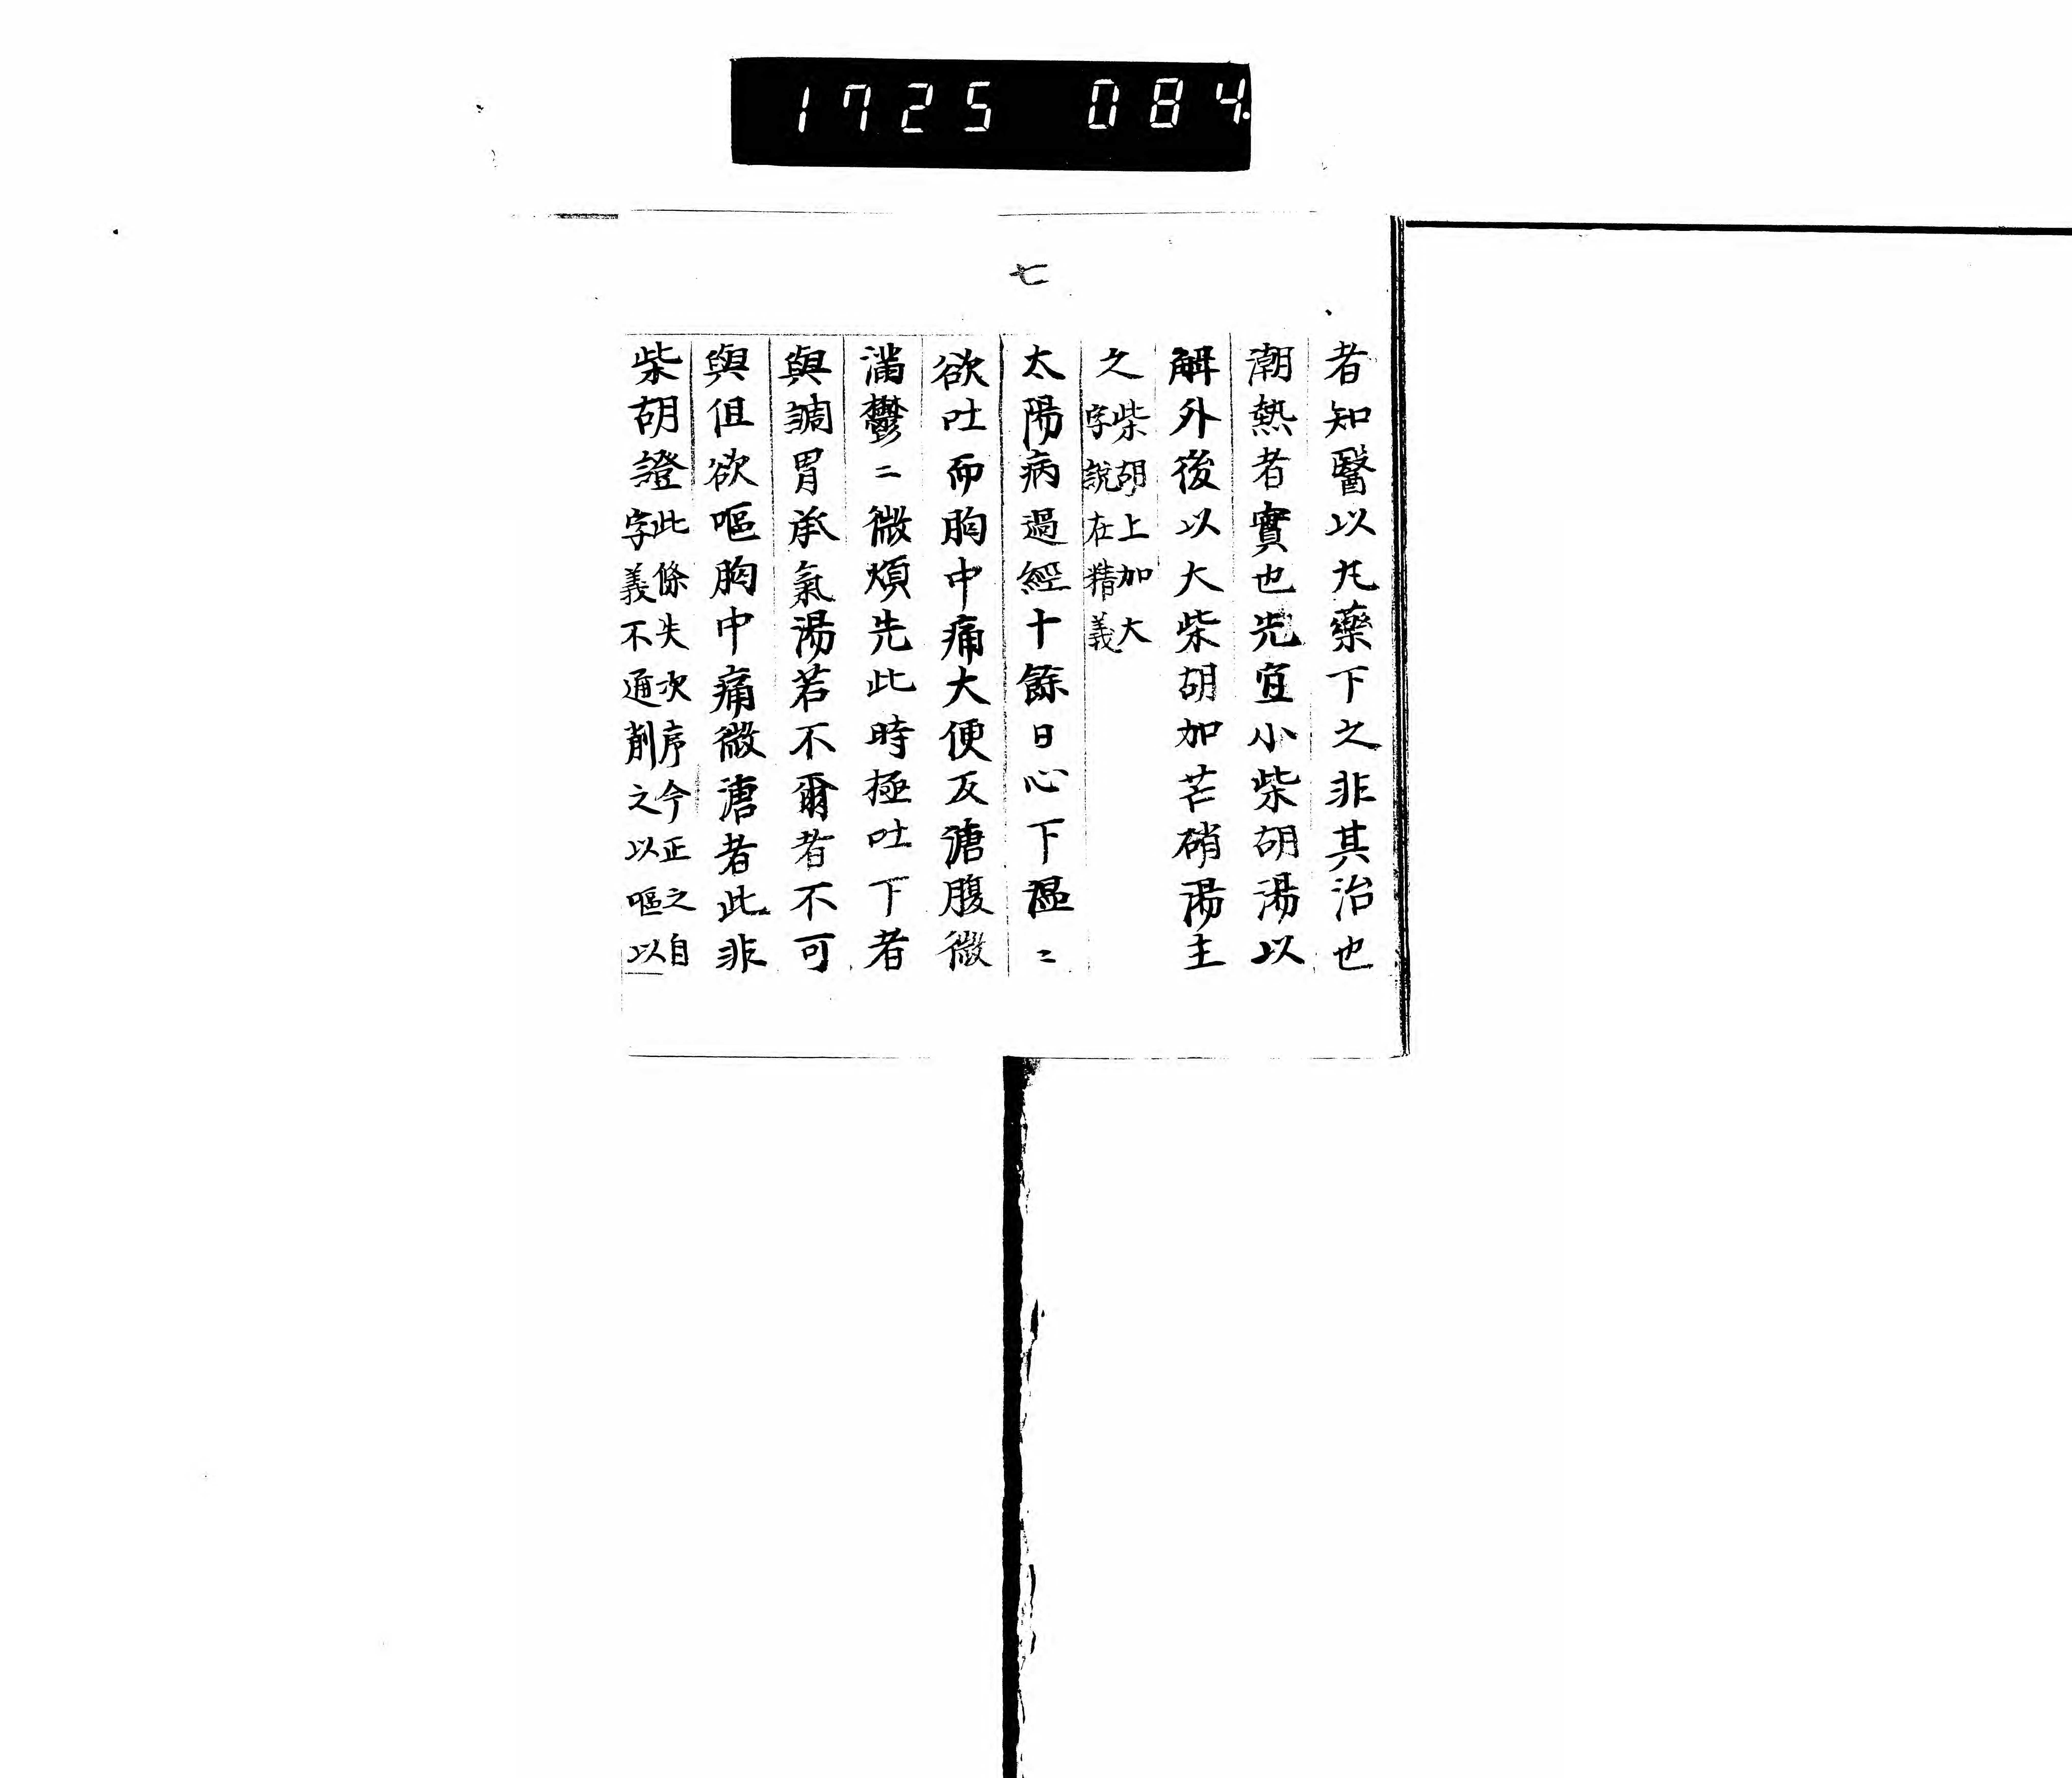 1725 084.
七
者知醫以丸藥下之非其治也
潮熱者實也先宜小柴胡湯以
解外後以大柴胡加芒硝湯主
之柴胡上加大
字說在精義
太陽病過經十餘日心下温〻
欲吐而胸中痛大便反溏腹微
滿鬱〻微煩先此時極吐下者
與調胃承氣湯若不爾者不可
與但欲嘔胸中痛微溏者此非
柴胡證此條失次序今正之自
字義不通削之以嘔以